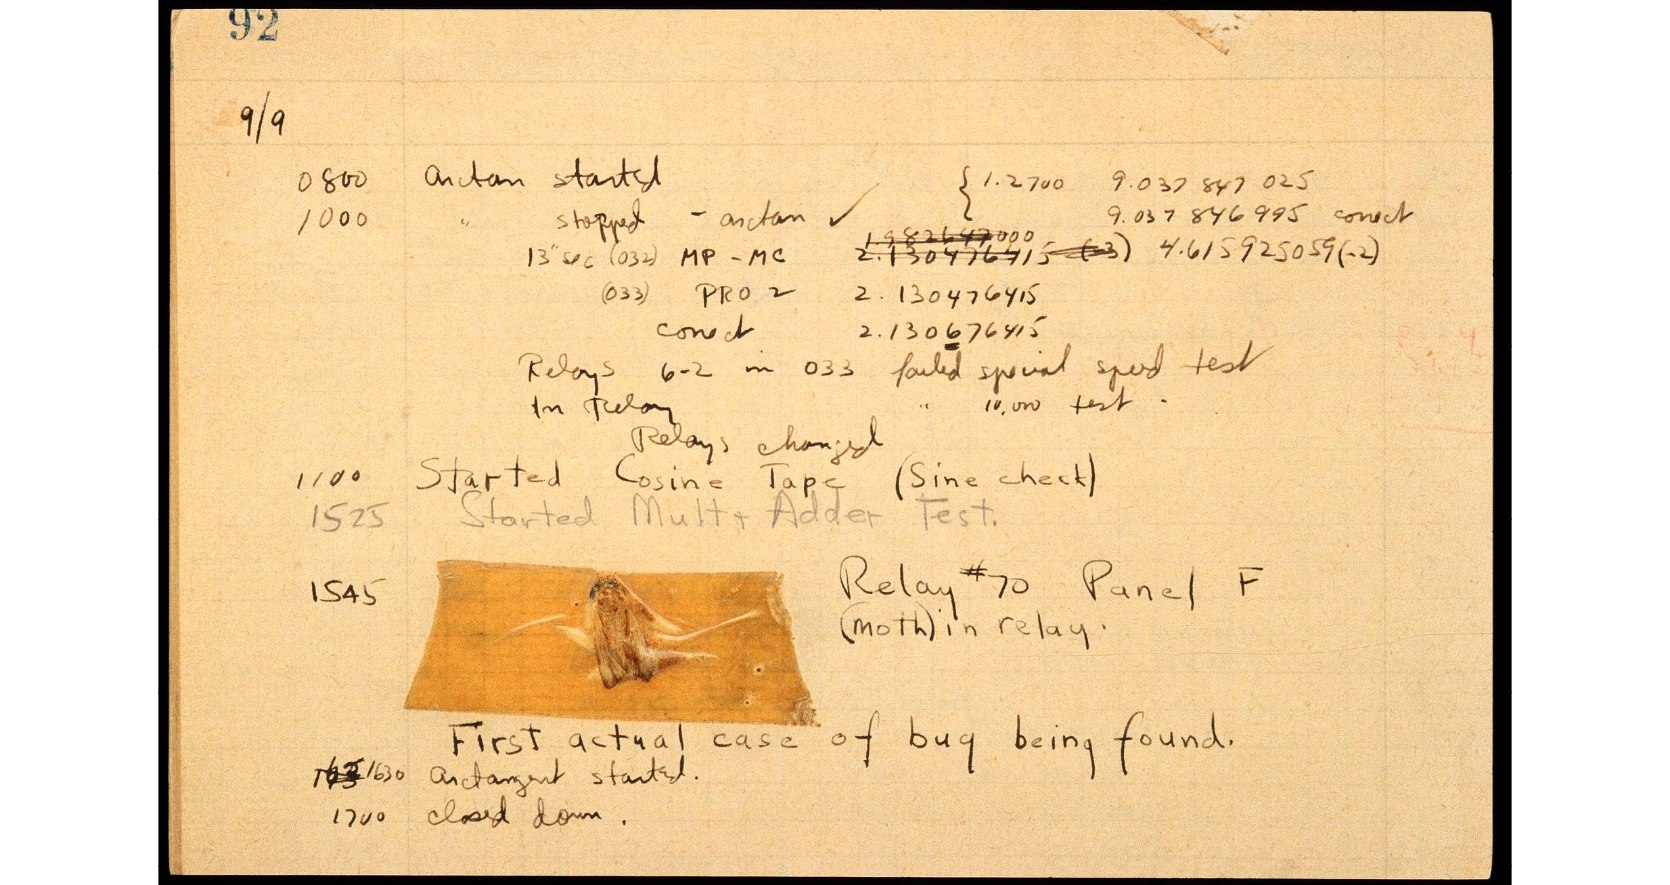 92
9/9
0800 arctan started { 1.2700 9.037 847 025
1000 " stopped - arctan ✓ { 9.037 846 995 correct
13" sec (032) MP - MC 1.982647000 2.130476415 (-3) 4.615925059(-2)
(033) PRO 2 2.130476415
correct 2.130676415
Relays 6-2 in 033 failed special speed test
In Relay " 10,000 test .
Relays changed
1100 Started Cosine Tape (Sine check)
1525 Started Mult + Adder Test.
1545 Relay #70 Panel F
(moth) in relay.
First actual case of bug being found.
1630 arctangent started.
1700 closed down.